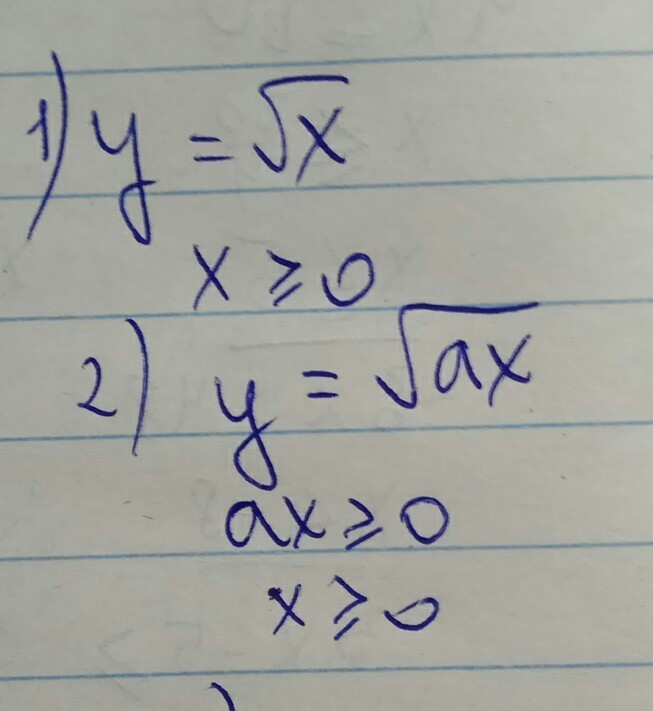 1) y = √x
x ≥ 0
2) y = √ax
ax ≥ 0
x ≥ 0